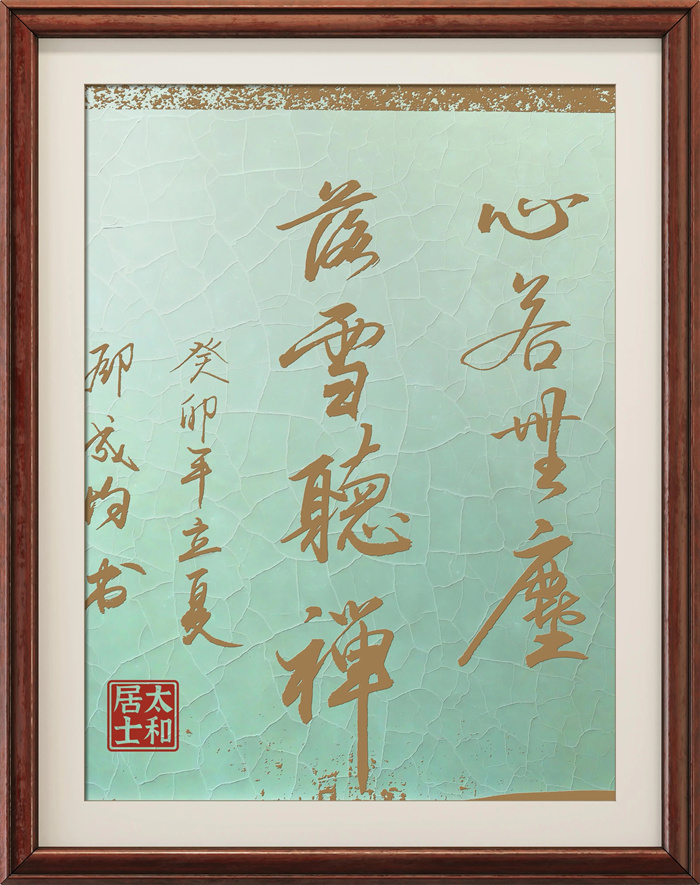 心若無塵
落雪聽禪
癸卯年立夏
邵成昀书
太和居士